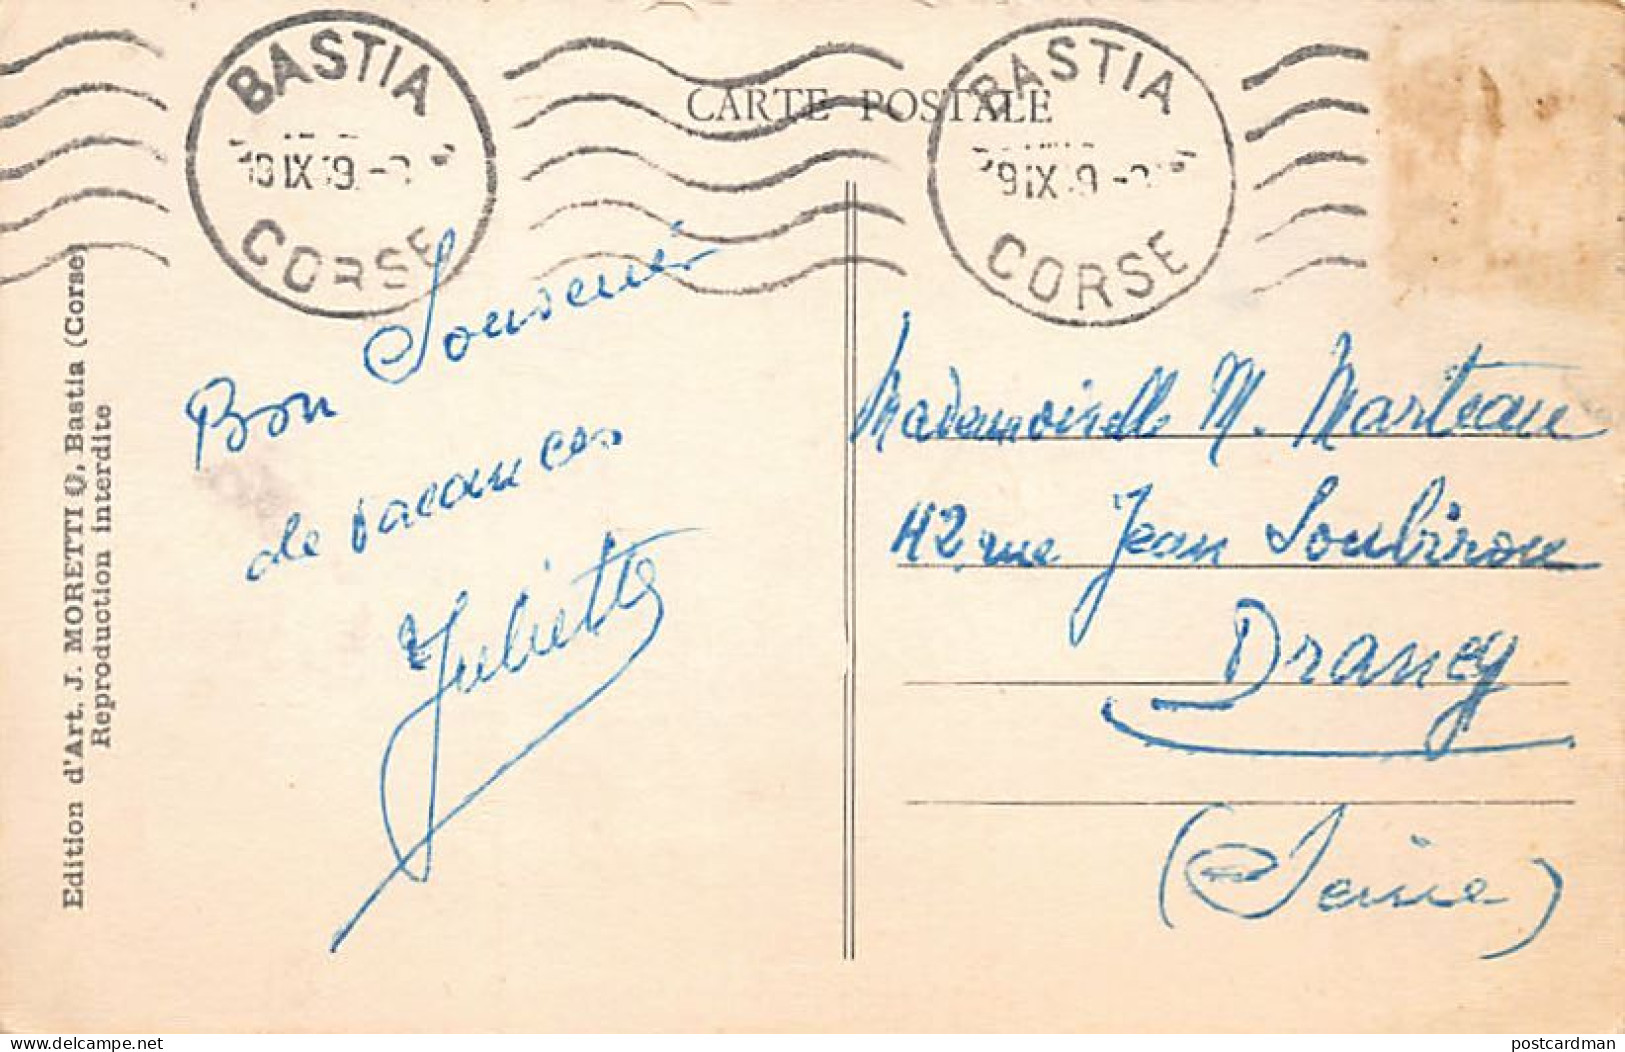 BASTIA
CORSE
BASTIA
CORSE
CARTE POSTALE
Edition d'Art. J. MORETTI Q, Bastia (Corse)
Reproduction interdite
Bon Souvenir
de vacances
Juliette
Mademoiselle M. Marteau
42, rue Jean Soubirou
Drancy
(Seine)
delcampe.net
postcardman